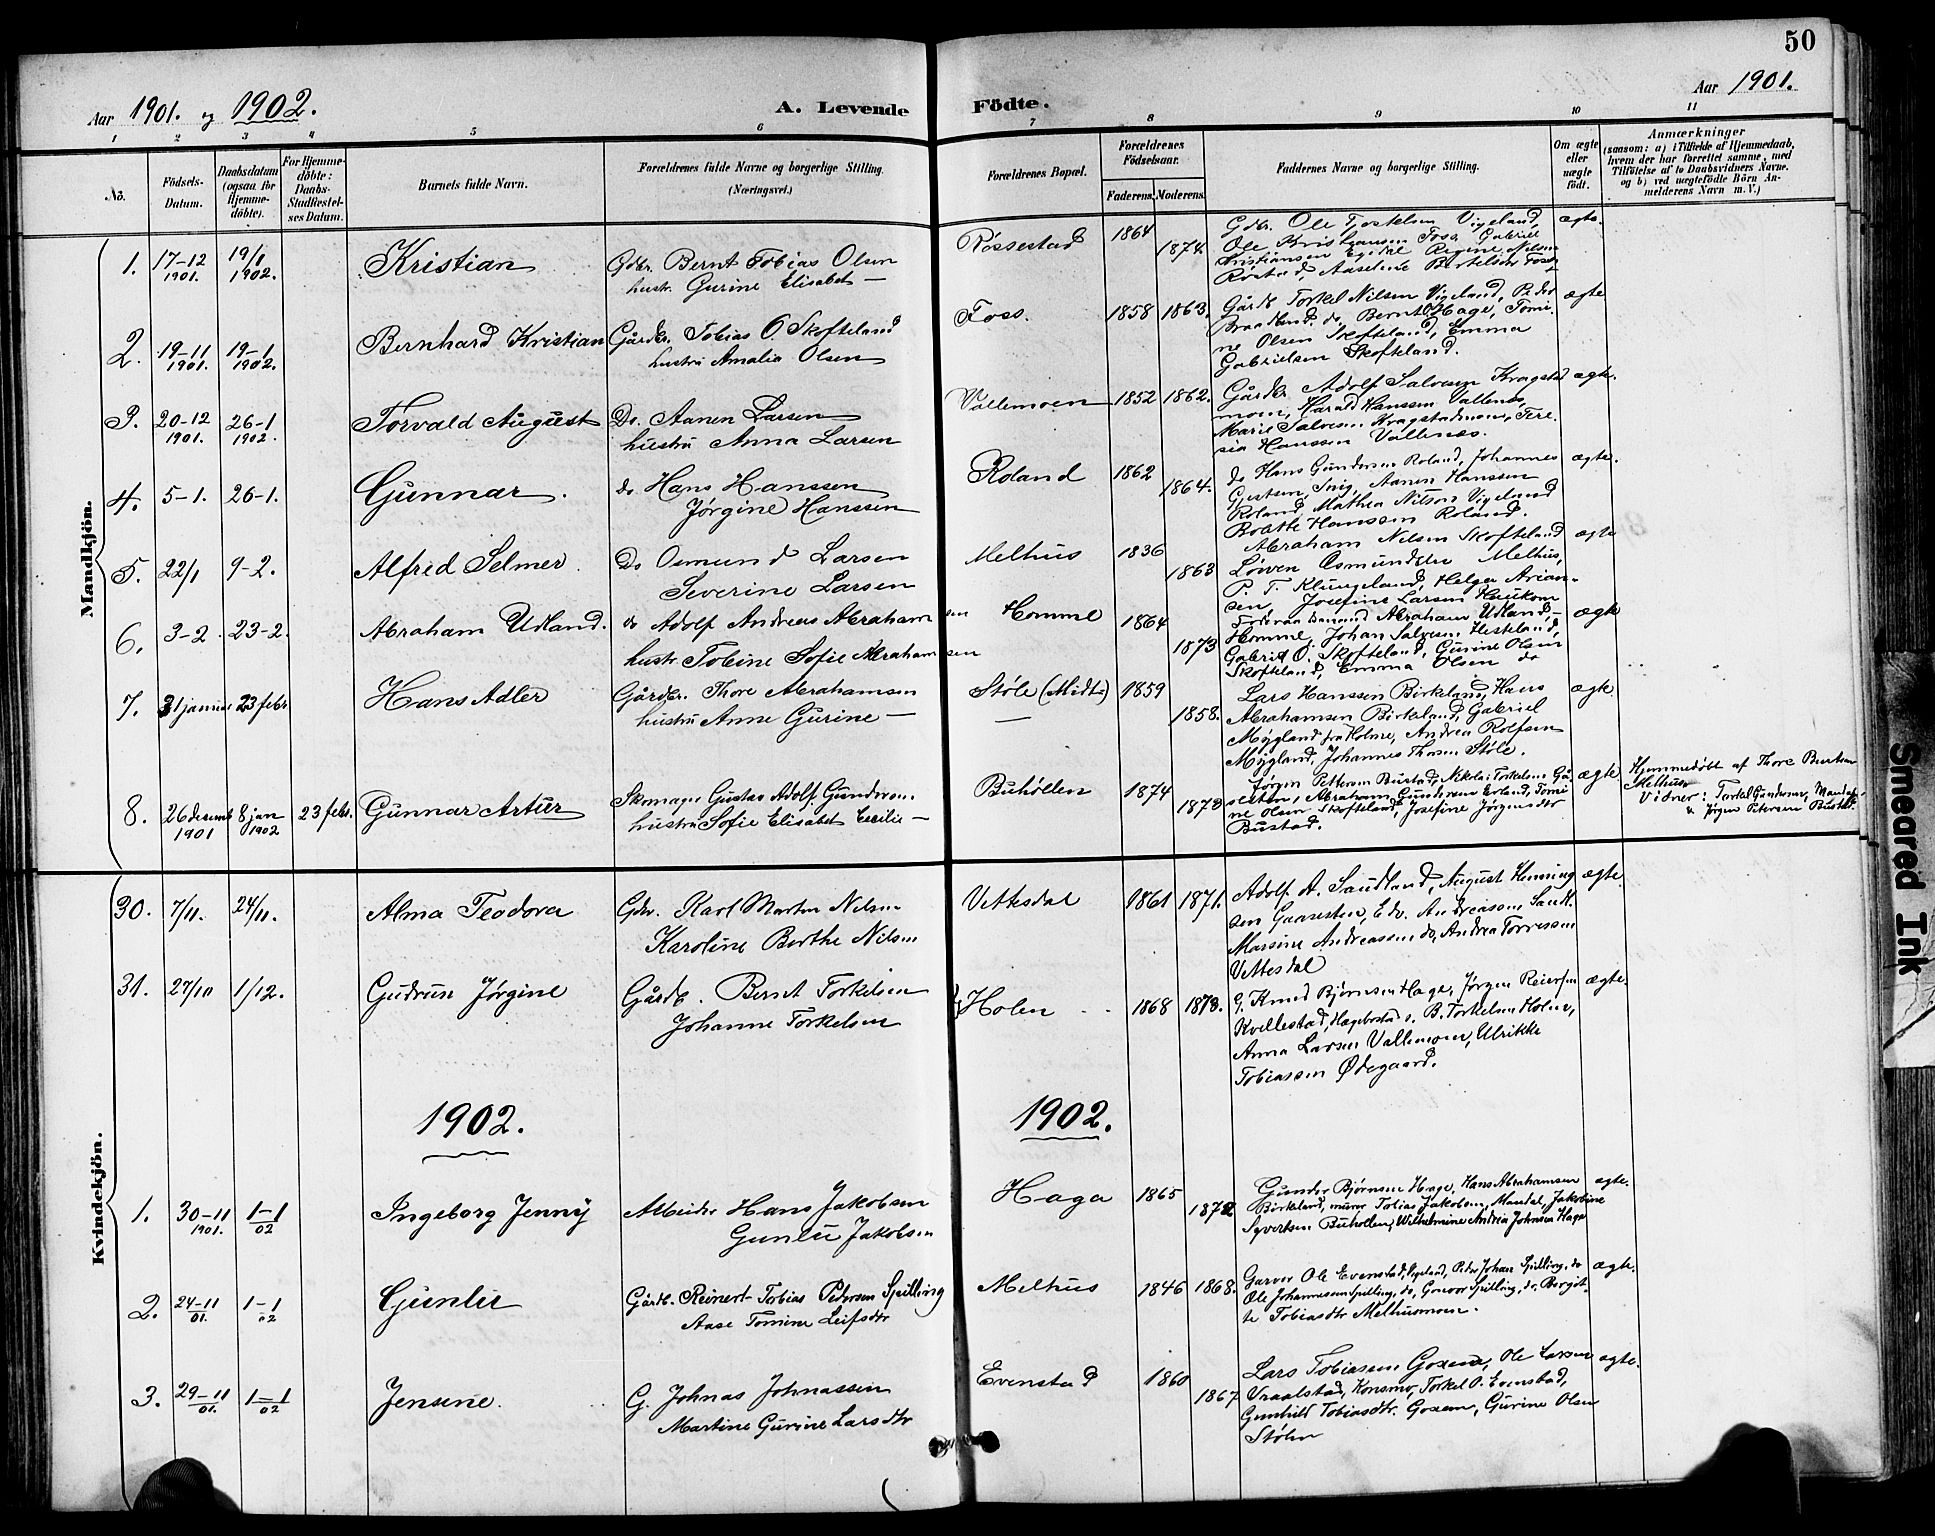 50
Aar 1901. og 1902.
A. Levende Födte.
Aar 1901.
1 2 3 4 5 6 7 8 9 10 11
No.
Födsels-Datum.
Daabsdatum (ogsaa for Hjemme-döbte).
For Hjemme-döbte: Daabs-Stadfæstel-ses Datum.
Barnets fulde Navn.
Forældrenes fulde Navne og borgerlige Stilling. (Næringsvei.)
Forældrenes Bopæl.
Forældrenes Födselsaar.
Faderens. Moderens.
Faddernes Navne og borgerlige Stilling.
Om ægte eller uægte født.
Anmærkninger
(saasom: a) i Tilfælde af Hjemmedaab,
hvem der har forrettet samme, med
Tilföielse af to Daabsvidners Navne.
og b) ved uægtefödte Börn An-
melderens Navn m. V.)
Mandkjön.
1. 17-12 1901. 19/1 1902. Kristian Gdbr. Bernt Tobias Olsen
hustr. Gurine Elisabet —
Røssestad 1864 1874. Gdbr. Ole Torkelsen Vigeland, ægte.
Ole Kristiansen Foss, Gabriel
Kristiansen Egedal Regine Nilsen
Røstad, Aaselene Bertelsdtr Foss
2. 19-11 1901. 19-1 1902. Bernhard Kristian Gårdbr. Tobias O. Skofteland
hustru Amalia Olsen
Foss. 1858 1863. Gårdb Torkel Nilsen Vigeland, Peder ægte
Braadland, do, Bernt Hage, Tomi-
ne Olsen Skofteland, Emma
Gabrielsen Skofteland.
3. 20-12 1901. 26-1 1902. Torvald August Do. Aanen Larsen
hustru Anna Larsen
Vallemoen 1852 1862. Gårdbr Adolf Salvesen Kragstad ægte.
moen, Harald Hanssen Vallenes,
Marie Salvesen Kragstadmoen, Tere
sia Hanssen Vallenæs.
4. 5-1. 26-1. Gunnar. do Hans Hanssen
Jørgine Hanssen
Roland 1862 1864. do Hans Gundersen Roland, Johannes ægte.
Gjertsen, Snig, Aanen Hanssen
Roland, Mathea Nilsen Vigeland
Boletthe Hanssen Roland.
5. 22/1 9-2. Alfred Selmer. Do Osmund Larsen
Severine Larsen
Melhus 1836 1863 Abraham Nilsen Skofteland ægte
Løwen Osmundsen Melhus,
P. T. Klungeland, Helga Arian-
sen, Josefine Larsen Haukom
6. 3-2. 23-2. Abraham Udland. do Adolf Andreas Abrahamsen
hustr. Tobine Sofie Abrahamsen
Homme 1864 1873 Abraham Udland, ægte
Homme, Johan Salvesen Heskeland,
Gabriel O. Skofteland, Gurine Olsen
Skofteland, Emma Olsen do
7. 31 januar 23 febr Hans Adler Gårdbr. Thore Abrahamsen
hustru Anne Gurine —
Støle (Midt-) 1859 1858. Lars Hanssen Birkeland, Hans ægte.
Abrahamsen Birkeland, Gabriel
Mygland fra Holme, Andrea Rolfsen
Mygland, Johannes Thorsen Støle.
8. 26 decemb 1901 8 jan 1902 23 febr. Gunnar Artur Skomager Gustav Adolf Gundersen
hustru Sofie Elisabet Cecilie —
Buhøllen 1874 1872 Jørgen Pettersen Bustad, Nikolai Torkelsen Gå- ægte
sesten, Abraham Gundersen Erland, Tomi
ne Olsen Skofteland, Josefine Jørgensdtr
Bustad.
Hjemmedøbt af Thore
Melhus
Vidner: Torkel Gundersen, Mandal
& Jørgen Petersen Bustad.
Kvindekjön.
30. 7/11. 24/11. Alma Teodora Gdbr. Karl Martin Nilsen
Karoline Berthe Nilsen
Vettesdal 1861 1871. Adolf A. Saudland, August Henning ægte.
sen Gaasesten, Edv. Andreassen, Saudl.
Massine Andreassen do, Andrea Torressen
Vettesdal
31. 27/10 1/12. Gudrun Jørgine Gårdb. Bernt Torkelsen
Johanne Torkelsen
Holen 1868 1872. G. Knud Bjørnsen Haga, Jørgen Reiersen ægte.
Kvellestad, Hægebostad s. B. Torkelsen Holen,
Anna Larsen Vallemoen, Ulrikke
Tobiassen Ødegaard.
1902. 1902.
1. 30-11 1901. 1-1 02 Ingeborg Jenny Arbeider Hans Jakobsen
Gunlu Jakobsen
Haga 1865 1872 Gunder Bjørnsen Hage, Hans Abrahamsen ægte.
Birkeland, murer Tobias Jakobsen, Mandal, Jakobine
Syvertsen Buhøllen, Wilhelmine Andrea Johnsen Haga
2. 24-11 01. 1-1 02 Gunlu Gårdb. Reinert Tobias Pedersen Spilling
Aase Tomine Leifsdtr
Melhus 1846 1868. Garver Ole Evenstad, Vigeland, Peder Johan Spilling, do ægte.
Ole Johannessen Spilling, do, Gunvor Spilling, do, Bergit-
te Tobiasdtr Melhusmoen.
3. 29-11 01. 1-1 02 Jensine. G. Johnas Johnassen
Martine Gurine Larsdtr
Evenstad 1860 1867 Lars Tobiassen Goxem, Ole Larsen ægte.
Vraalstad, Konsmo, Torkel O. Evenstad,
Gunhild Tobiasdtr. Goxem, Gurine Olsen
Stølen
Smeared Ink